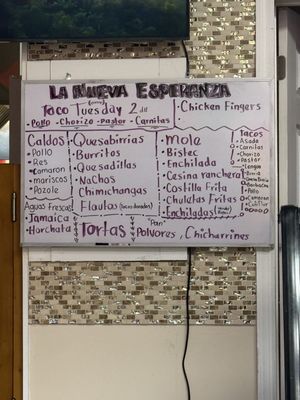 LA NUEVA ESPERANZA
Taco Tuesday 2 dll
• Pollo • Chorizo • Pastor • Carnitas
• Chicken Fingers
Caldos
• Pollo
• Res
• Camaron
• mariscos
• Pozole
Aguas Frescas
Jamaica
Horchata
• Quesabirrias
• Burritos
• Quesadillas
• Nachos
• Chimichangas
• Flautas (tacos dorados)
Tortas
• Mole
• Bistec
• Enchilada
• Cesina ranchera
• Costilla Frita
• Chuletas Fritas
• Enchiladas
"Pan"
Polvores, Chicharrines
Tacos
• Asada
• Carnitas
• Chorizo
• Pastor
• Lengua
• Birria
• Barbacoa
• Pollo
• Camaron